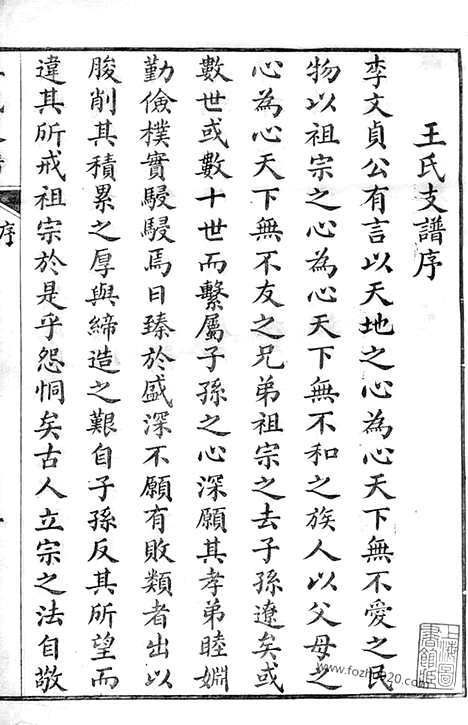 王氏支譜序
李文貞公有言以天地之心為心天下無不愛之民
物以祖宗之心為心天下無不和之族人以父母之
心為心天下無不友之兄弟祖宗之去子孫遼矣或
數世或數十世而繫屬子孫之心深願其孝弟睦婣
勤儉樸實駸駸焉日臻於盛深不願有敗類者出以
朘削其積累之厚與締造之艱自子孫反其所望而
違其所戒祖宗於是乎怨恫矣古人立宗之法自敬
序
上海圖書館藏
www.fozhu920.com